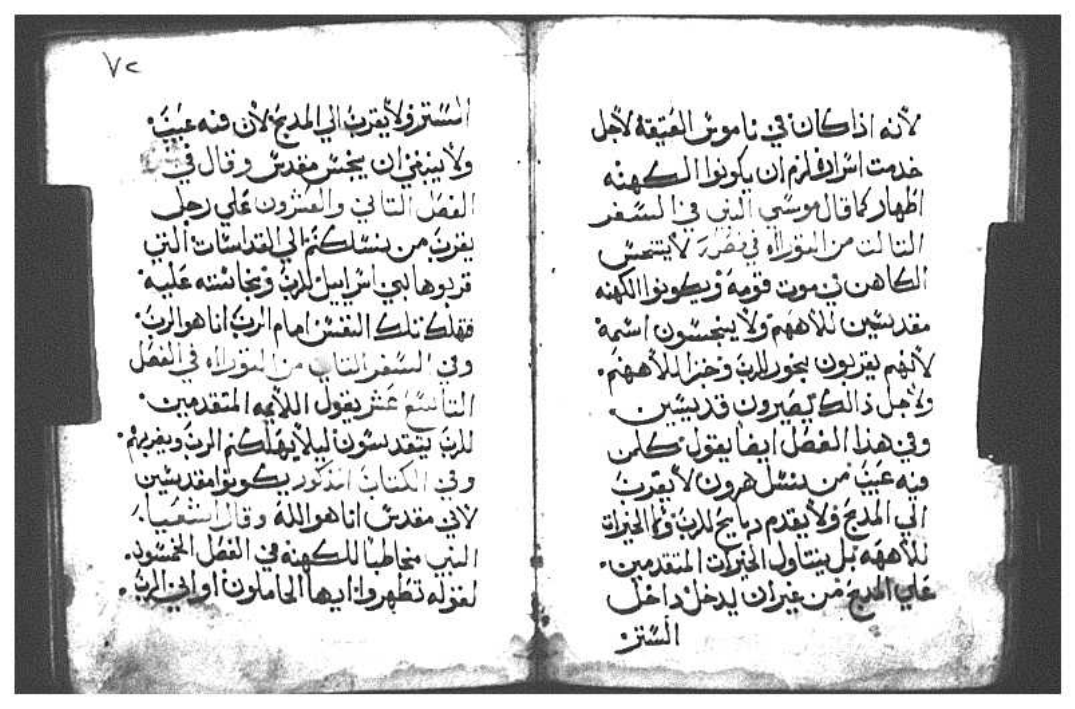 لأنه اذا كان في ناموس العتيقة لأجل
خدمت اسراره لزم ان يكونوا الكهنه
اظهار كما قال موسي النبي في السفر
التالت من التوراه في لا يتنجس
الكاهن في موت قومه ويكونوا الكهنه
مقدسين للاههم ولا ينجسون اسمه
لأنهم يقربون بخور للرب وخبزا للاههم.
ولأجل ذالك يصيرون قديسين.
وفي هذا الفصل ايضا يقول كلمن
فيه عيب من نسل هرون لا يقرب
الي المدبح ولا يقدم دبايح للرب ولا الخبزات
للاهه بل يتناول الخبزات المتقدمين.
علي المدبح من غير ان يدخل داخل
الستر
٧٢
الستر ولا يقرب الي المدبح لأن فيه عيب.
ولا ينبغي ان ينجس مقدس وقال في
الفصل التاني والعشرون علي رجل
يقرب من نسلكم الي القداسات التي
قربوها بني اسراييل للرب ونجاسته عليه
فهلك تلك النفس امام الرب انا هو الرب.
وفي السفر التاني من التوراه في الفصل
التاسع عشر يقول اللايمه المتقدمين.
للرب يتقدسون ليلا يهلكهم الرب ويضربهم.
وفي الكتاب المذكور يكونوا مقدسين
لاني مقدس انا هو الله وقال اشعيا.
النبي مخاطبا للكهنه في الفصل الخمسون.
لقوله تطهروا ايها الحاملون اواني الرب.